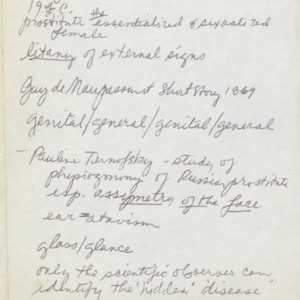 19th C.
prostitute the essentialized & sexualized
female
litany of external signs
Guy de Maupassant Short Story 1869
genital/general/genital/general
- Pauline Ternofsky - study of
physiognomy of Russian prostitute
esp. assymetry of the face
ear = atavism
glass/glance
only the scientific observer can
identify the "hidden" disease"